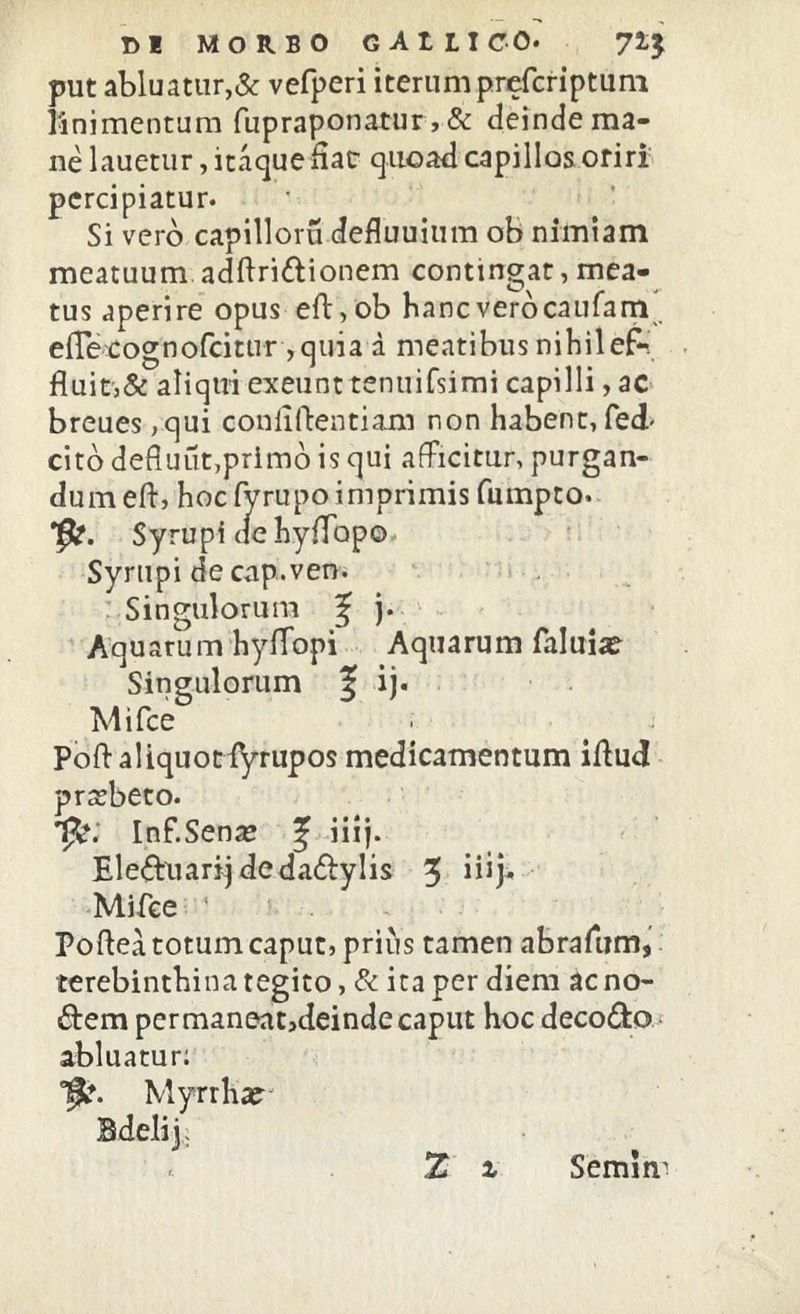 DE MORBO GALLICO. 723
put abluatur,& vesperi iterum pręscriptum
linimentum supraponatur, & deinde ma-
nè lauetur, itáque fiat quoad capillos oriri
percipiatur.
Si verò capillorũ defluuium ob nimiam
meatuum adstrictionem contingat, mea-
tus aperire opus est, ob hanc verò causam
esse cognoscitur, quia à meatibus nihil ef-
fluit,& aliqui exeunt tenuissimi capilli, ac
breues, qui consistentiam non habent, sed
citò defluũt, primò is qui afficitur, purgan-
dum est, hoc syrupo imprimis sumpto.
℞. Syrupi de hyssopo
Syrupi de cap.ven.
Singulorum ℥ j.
Aquarum hyssopi Aquarum saluiæ
Singulorum ℥ ij.
Misce
Post aliquot syrupos medicamentum istud
præbeto.
℞. Inf.Senæ ℥ iiij.
Electuarij de dactylis ʒ iiij.
Misce
Posteà totum caput, priùs tamen abrasum,
terebinthina tegito, & ita per diem ac no-
ctem permaneat, deinde caput hoc decocto
abluatur.
℞. Myrrhæ
Bdelij
Z 2 Semin